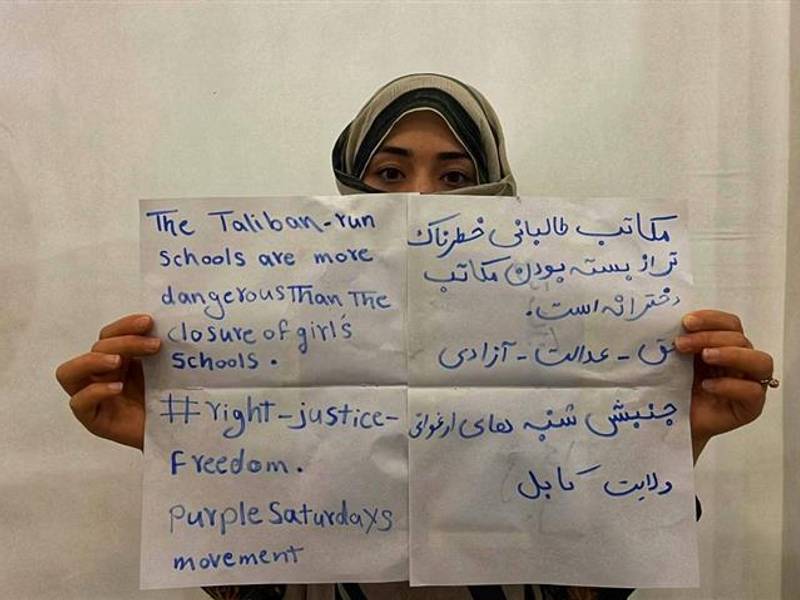 The Taliban-run
schools are more
dangerous Than The
closure of girl's
schools.
#right-justice-
Freedom.
purple Saturdays
movement
مکاتب طالبانی خطرناک
تر از بسته بودن مکاتب
دخترانه است.
حق - عدالت - آزادی
جنبش شنبه های ارغوانی
ولایت کابل